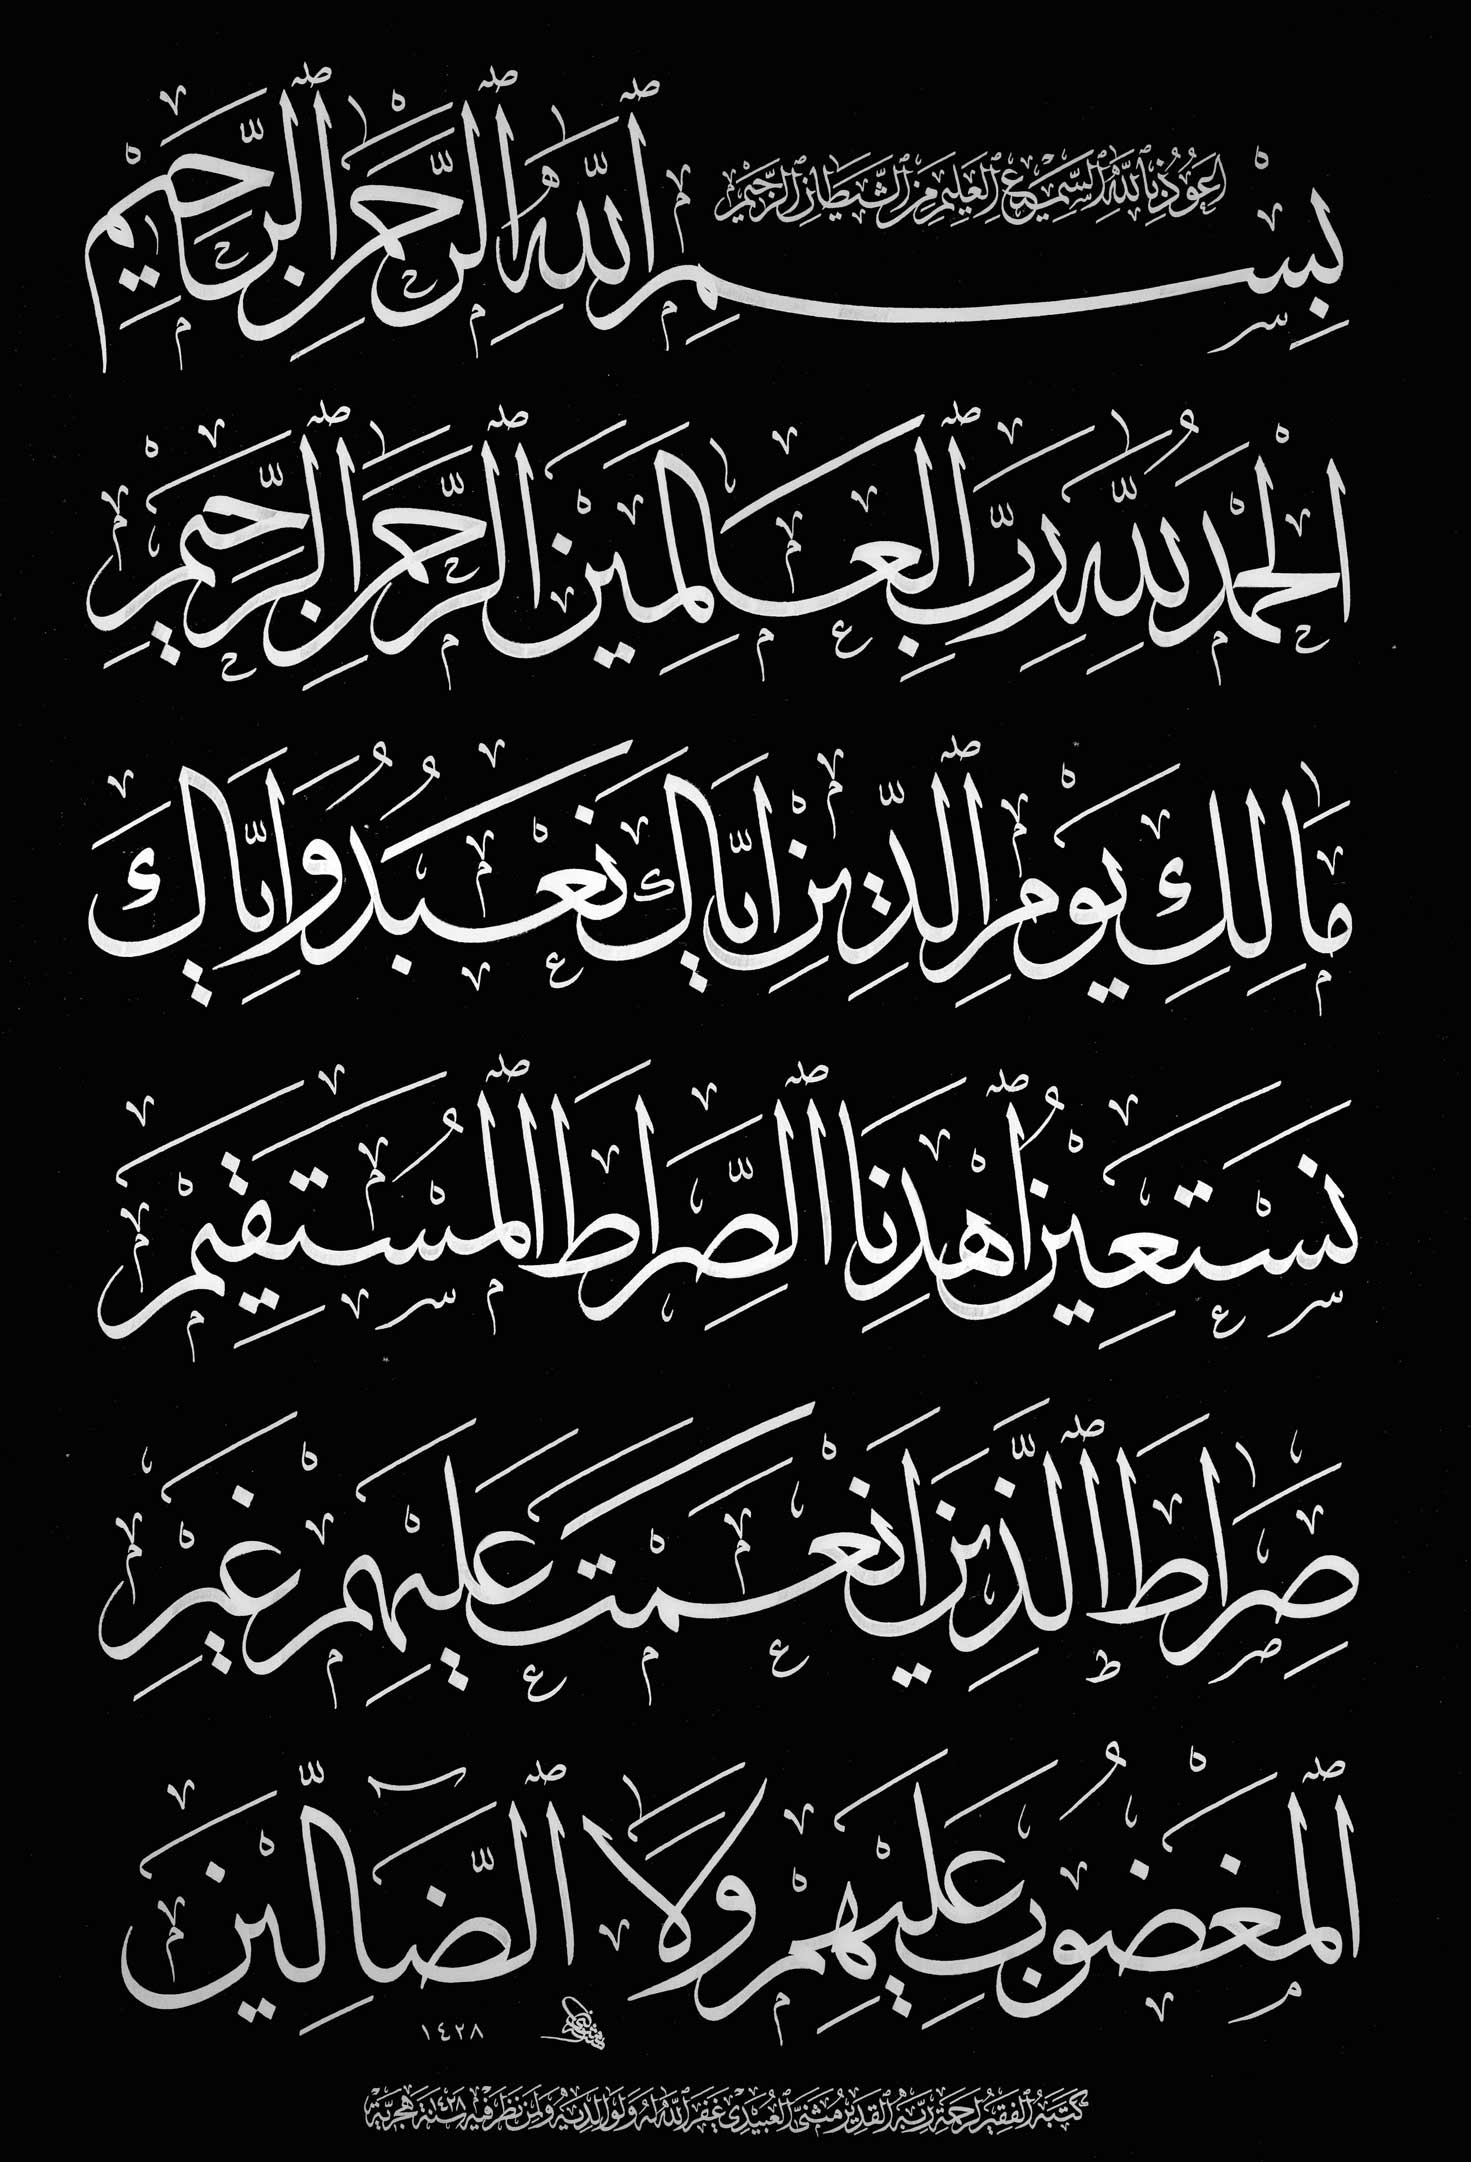 اعوذ بالله السميع العليم من الشيطان الرجيم
بِسْمِ ٱللّٰهِ ٱلرَّحْمٰنِ ٱلرَّحِيْمِ
اَلْحَمْدُ لِلّٰهِ رَبِّ ٱلْعَالَمِيْنَ ٱلرَّحْمٰنِ ٱلرَّحِيْمِ
مَالِكِ يَوْمِ ٱلدِّيْنِ اِيَّاكَ نَعْبُدُ وَاِيَّاكَ
نَسْتَعِيْنُ ٱهْدِنَا ٱلصِّرَاطَ ٱلْمُسْتَقِيْمَ
صِرَاطَ ٱلَّذِيْنَ اَنْعَمْتَ عَلَيْهِمْ غَيْرِ
ٱلْمَغْضُوْبِ عَلَيْهِمْ وَلَا ٱلضَّآلِّيْنَ
١٤٢٨
كتبه الفقير لرحمة ربه القدير مثنى العبيدي غفر الله له ولوالديه ولمن نظر فيه سنة ١٤٢٨ هجرية